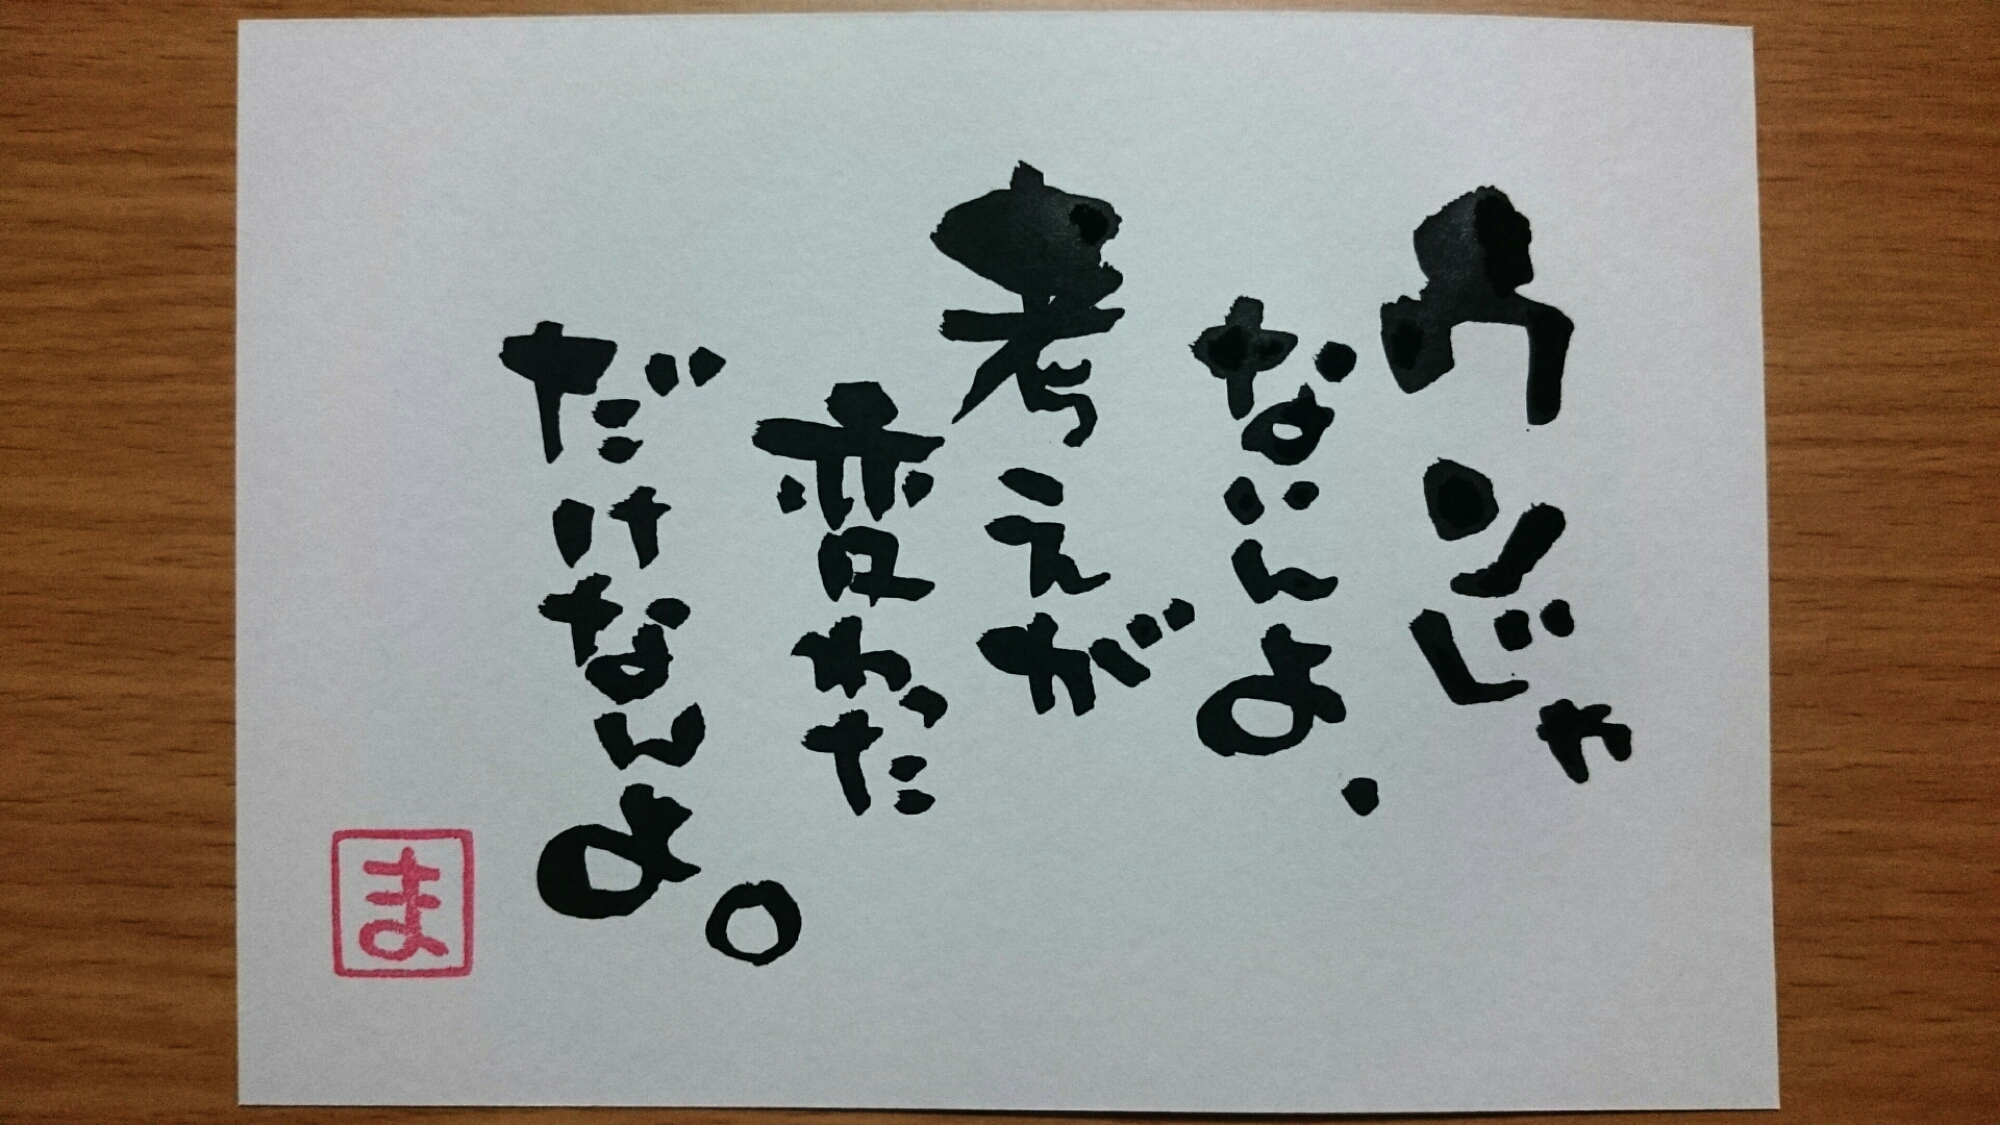 ウソじゃ
ないんよ、
考えが
変わった
だけなんよ。
ま